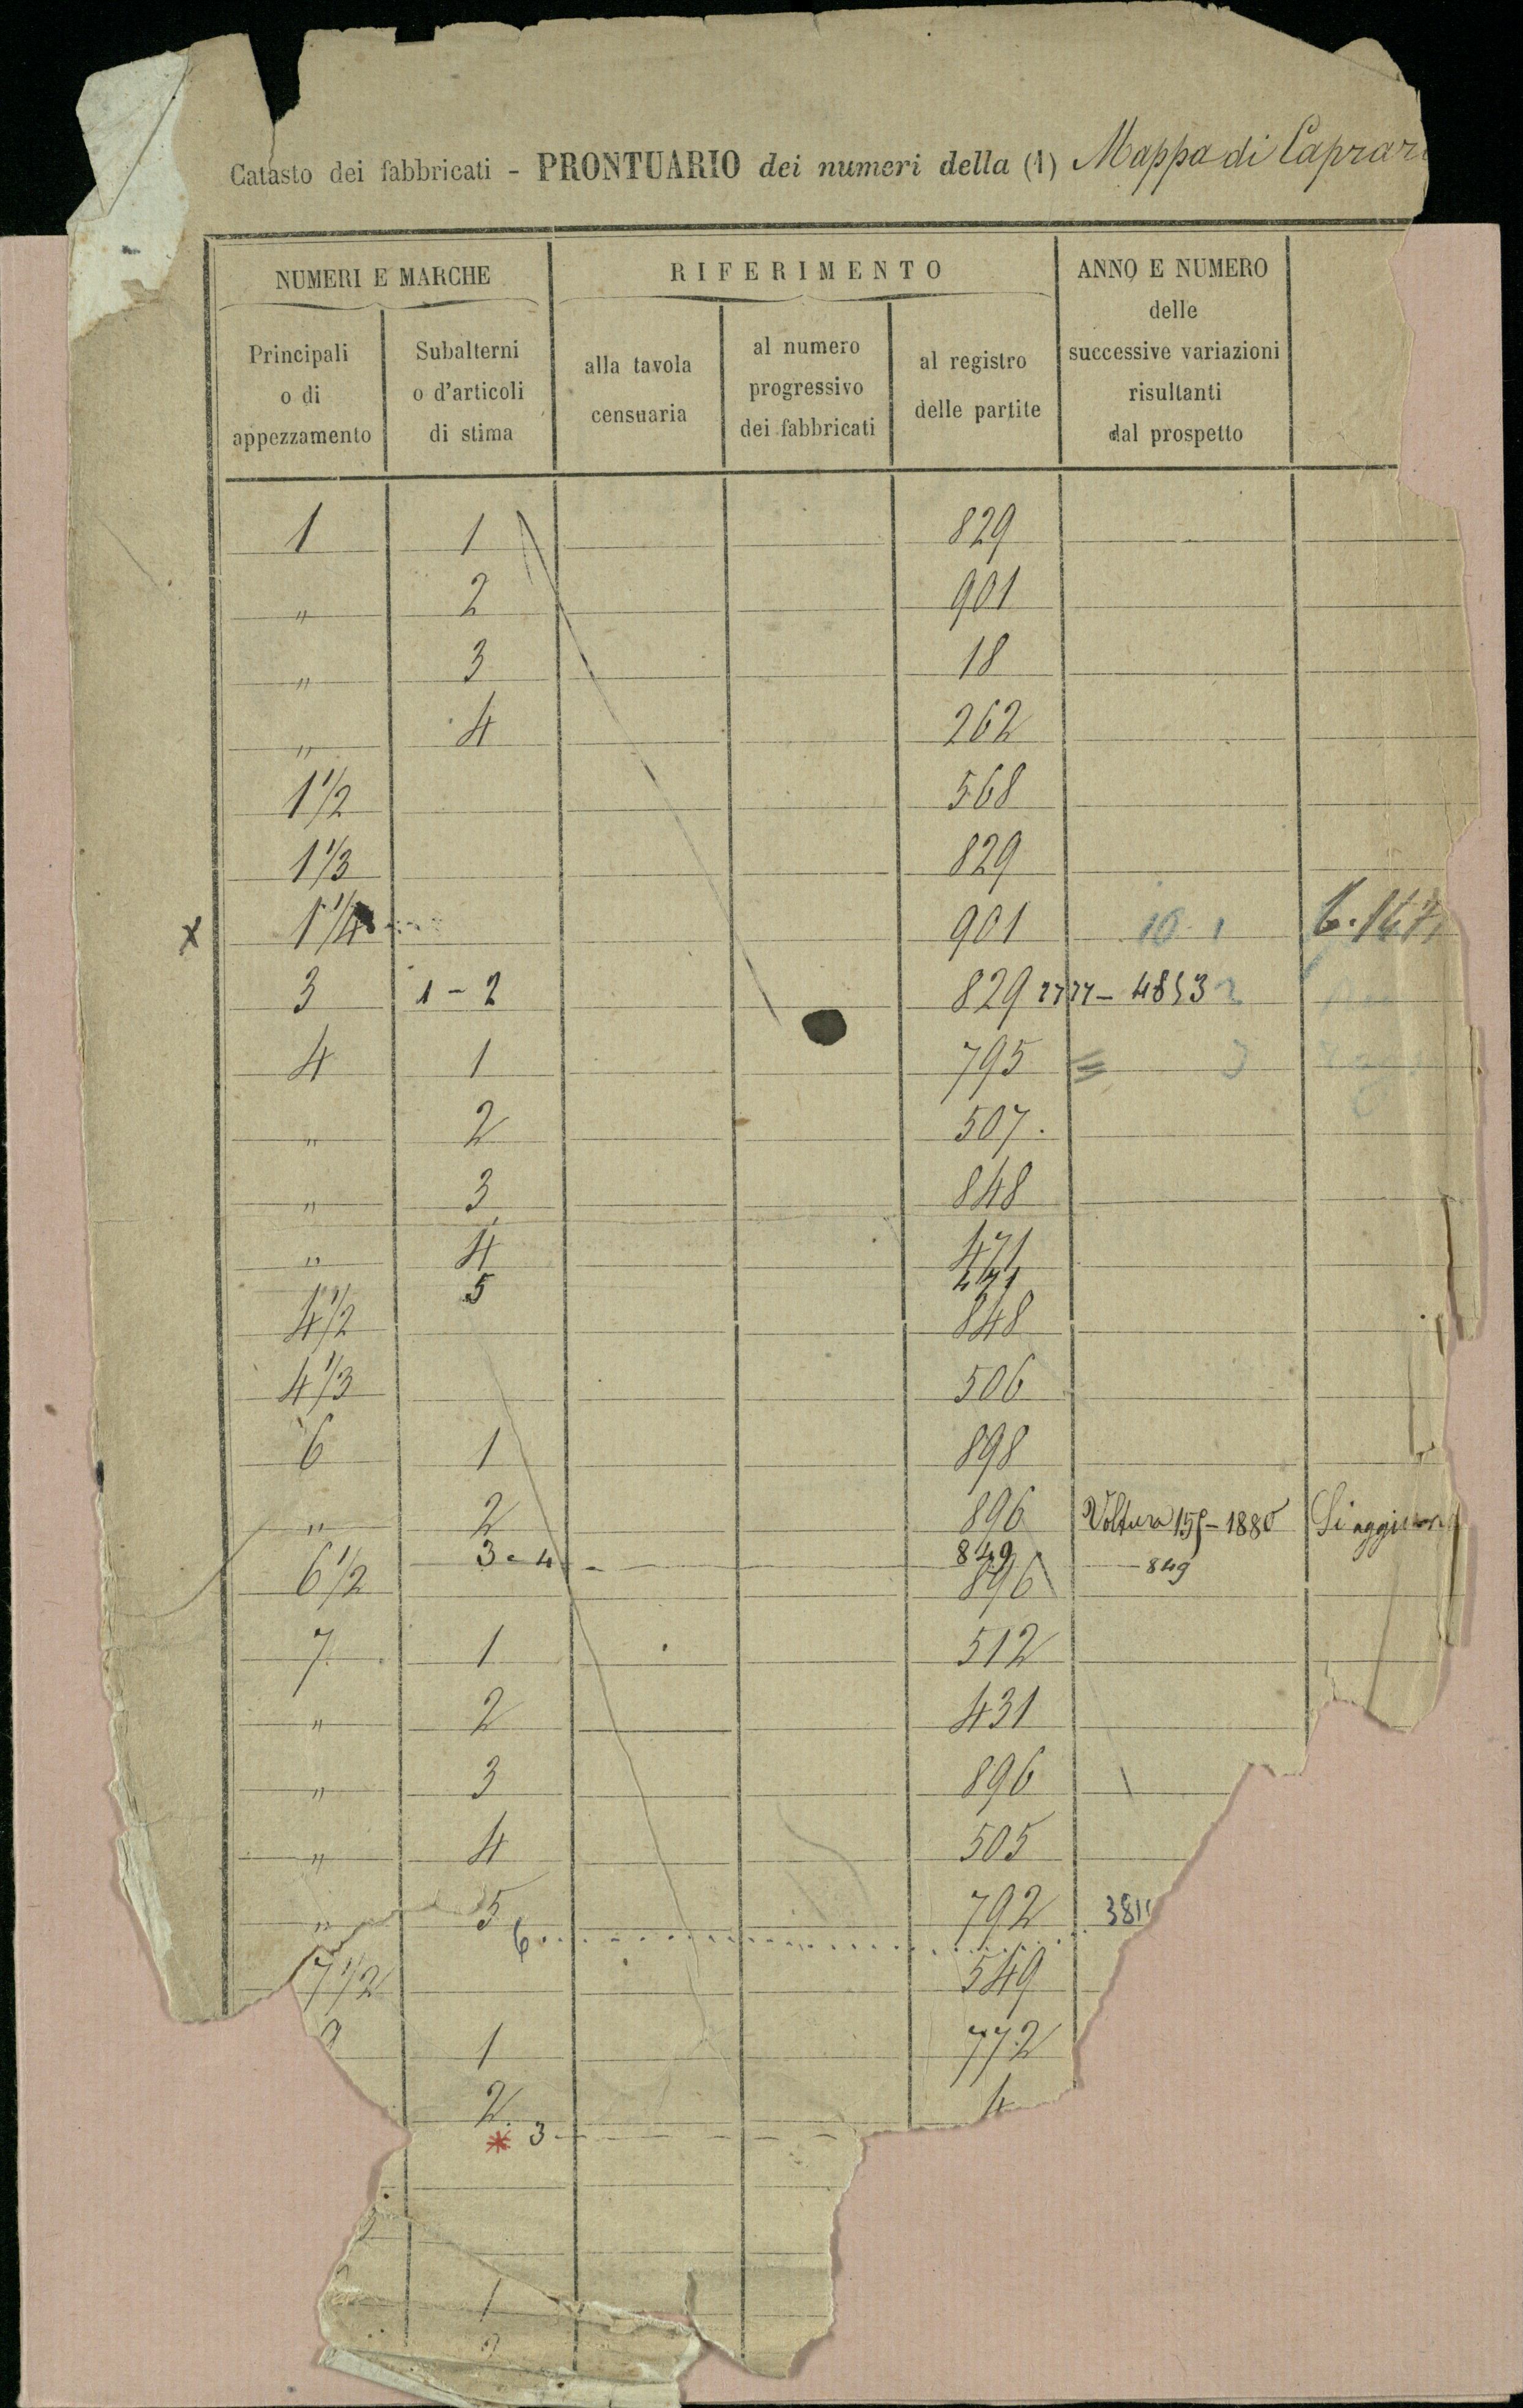 Catasto dei fabbricati - PRONTUARIO dei numeri della (1) Mappa di Caprar
NUMERI E MARCHE
RIFERIMENTO
ANNO E NUMERO
delle
successive variazioni
risultanti
dal prospetto
Principali
o di
appezzamento
Subalterni
o d'articoli
di stima
alla tavola
censuaria
al numero
progressivo
dei fabbricati
al registro
delle partite
1 1 829
" 2 901
" 3 18
" 4 262
1 1/2 568
1 1/3 829
x 1 1/4 901 10 1
3 1-2 829 4853
4 1 795 3
" 2 507.
" 3 848
" 4 471
5 471
4 1/2 848
4 1/3 506
6 1 898
" 2 896 Voltura 155-1880 Si aggiun
3-4 849 849
6 1/2 896
7 1 512
" 2 431
" 3 896
" 4 505
" 5 792 381
6
7 1/2 549
9 1 772
2 4
* 3
1
2